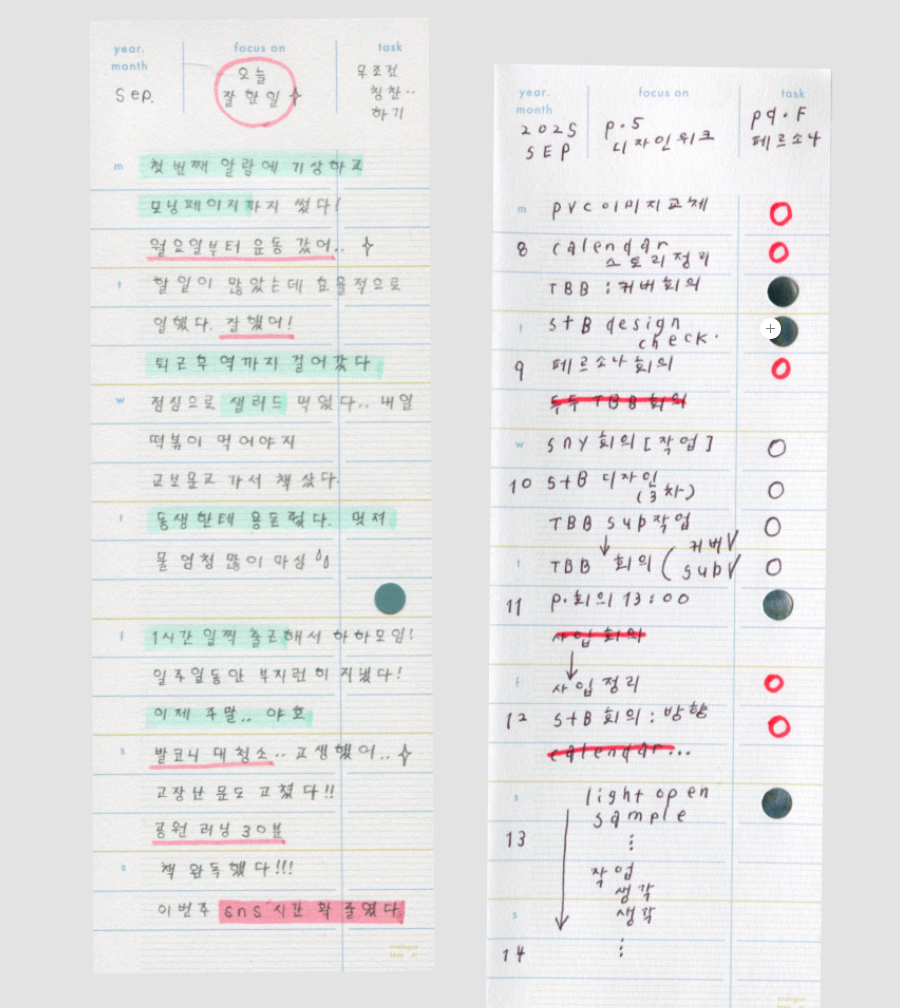 year.
month
focus on
task
Sep.
오늘
잘 한 일
무조건
칭찬..
하기
m
첫 번째 알람에 기상하고
모닝페이지까지 썼다!
월요일부터 운동 갔어..
t
할 일이 많았는데 효율적으로
일했다. 잘했어!
퇴근 후 역까지 걸어갔다
w
점심으로 샐러드 먹었다.. 내일
떡볶이 먹어야지
교보문고 가서 책 샀다.
t
동생한테 용돈줬다. 멋져
물 엄청 많이 마심
f
1시간 일찍 출근해서 하하모임!
일주일동안 부지런히 지냈다!
이제 주말.. 야호
s
발코니 대청소.. 고생했어..
고장난 문도 고쳤다!!
공원 러닝 30분
s
책 완독했다!!!
이번주 sns 시간 확 줄였다.
year.
month
focus on
task
2025
SEP
p.5
디자인워크
pq.F
페르소나
m
pvc 이미지교체
8
calendar
스토리정리
TBB : 커버회의
t
s+B design
check.
9
페르소나 회의
두두 TBB 회의
w
sny 회의 [작업]
10
s+B 디자인
(3차)
TBB sup작업
t
TBB 회의 ( 커버√
sup√
11
p.회의 13:00
사입 회의
f
사입정리
12
s+B 회의 : 방향
calendar...
s
light open
sample
13
⋮
작업
생각
s
생각
14
⋮